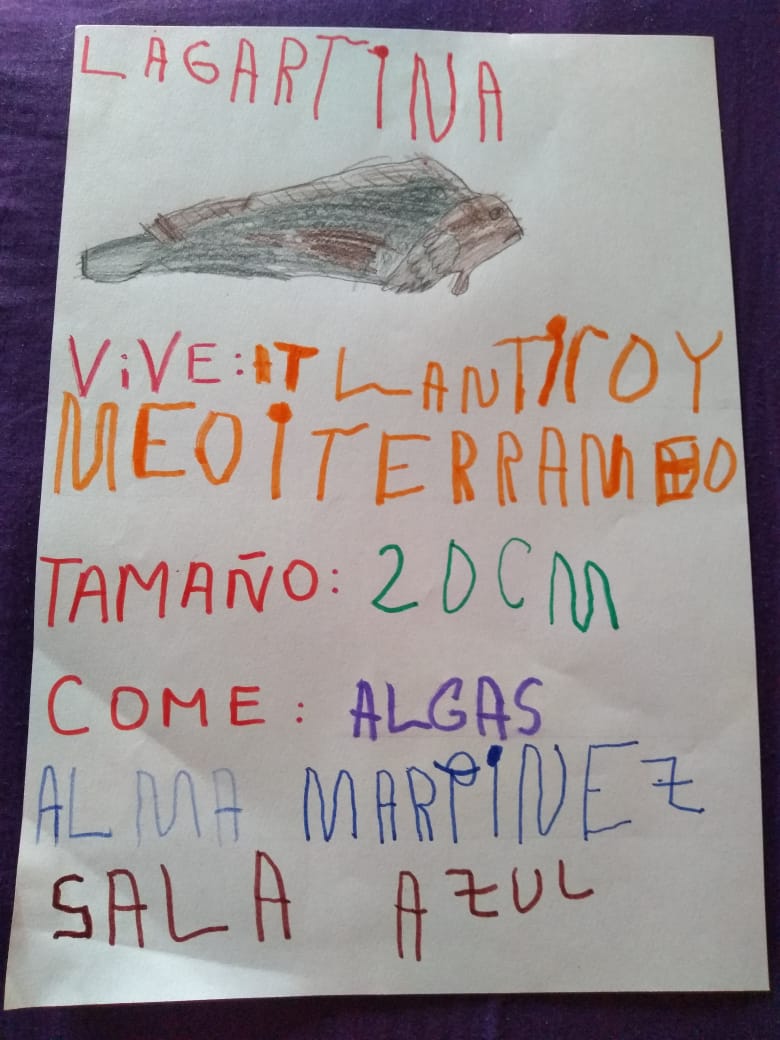 LAGARTiNA
ViVE: ATLANTiCO Y
MEDiTERRAMEO
TAMAÑO: 20CM
COME: ALGAS
ALMA MARTiNEZ
SALA AZUL